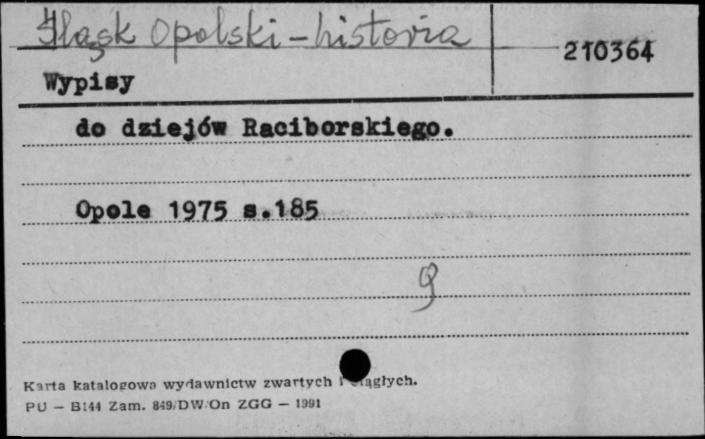 Śląsk Opolski - historia
210364
Wypisy
do dziejów Raciborskiego.
Opole 1975 s.185
9
Karta katalogowa wydawnictw zwartych i ciągłych.
PU — B144 Zam. 849/DW/On ZGG — 1991